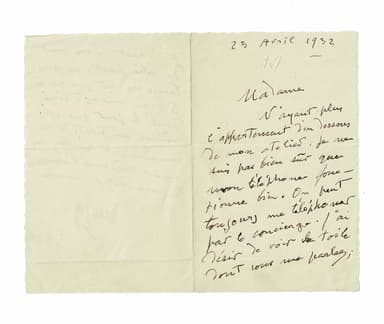 23 Avril 1932
Madame
N'ayant plus
l'appartement du dessous
de mon atelier. Je ne
suis pas bien sûr que
mon téléphone fonc-
tionne bien. On peut
toujours me téléphoner
par le concierge. J'ai
désir de voir la toile
dont vous me parlez,